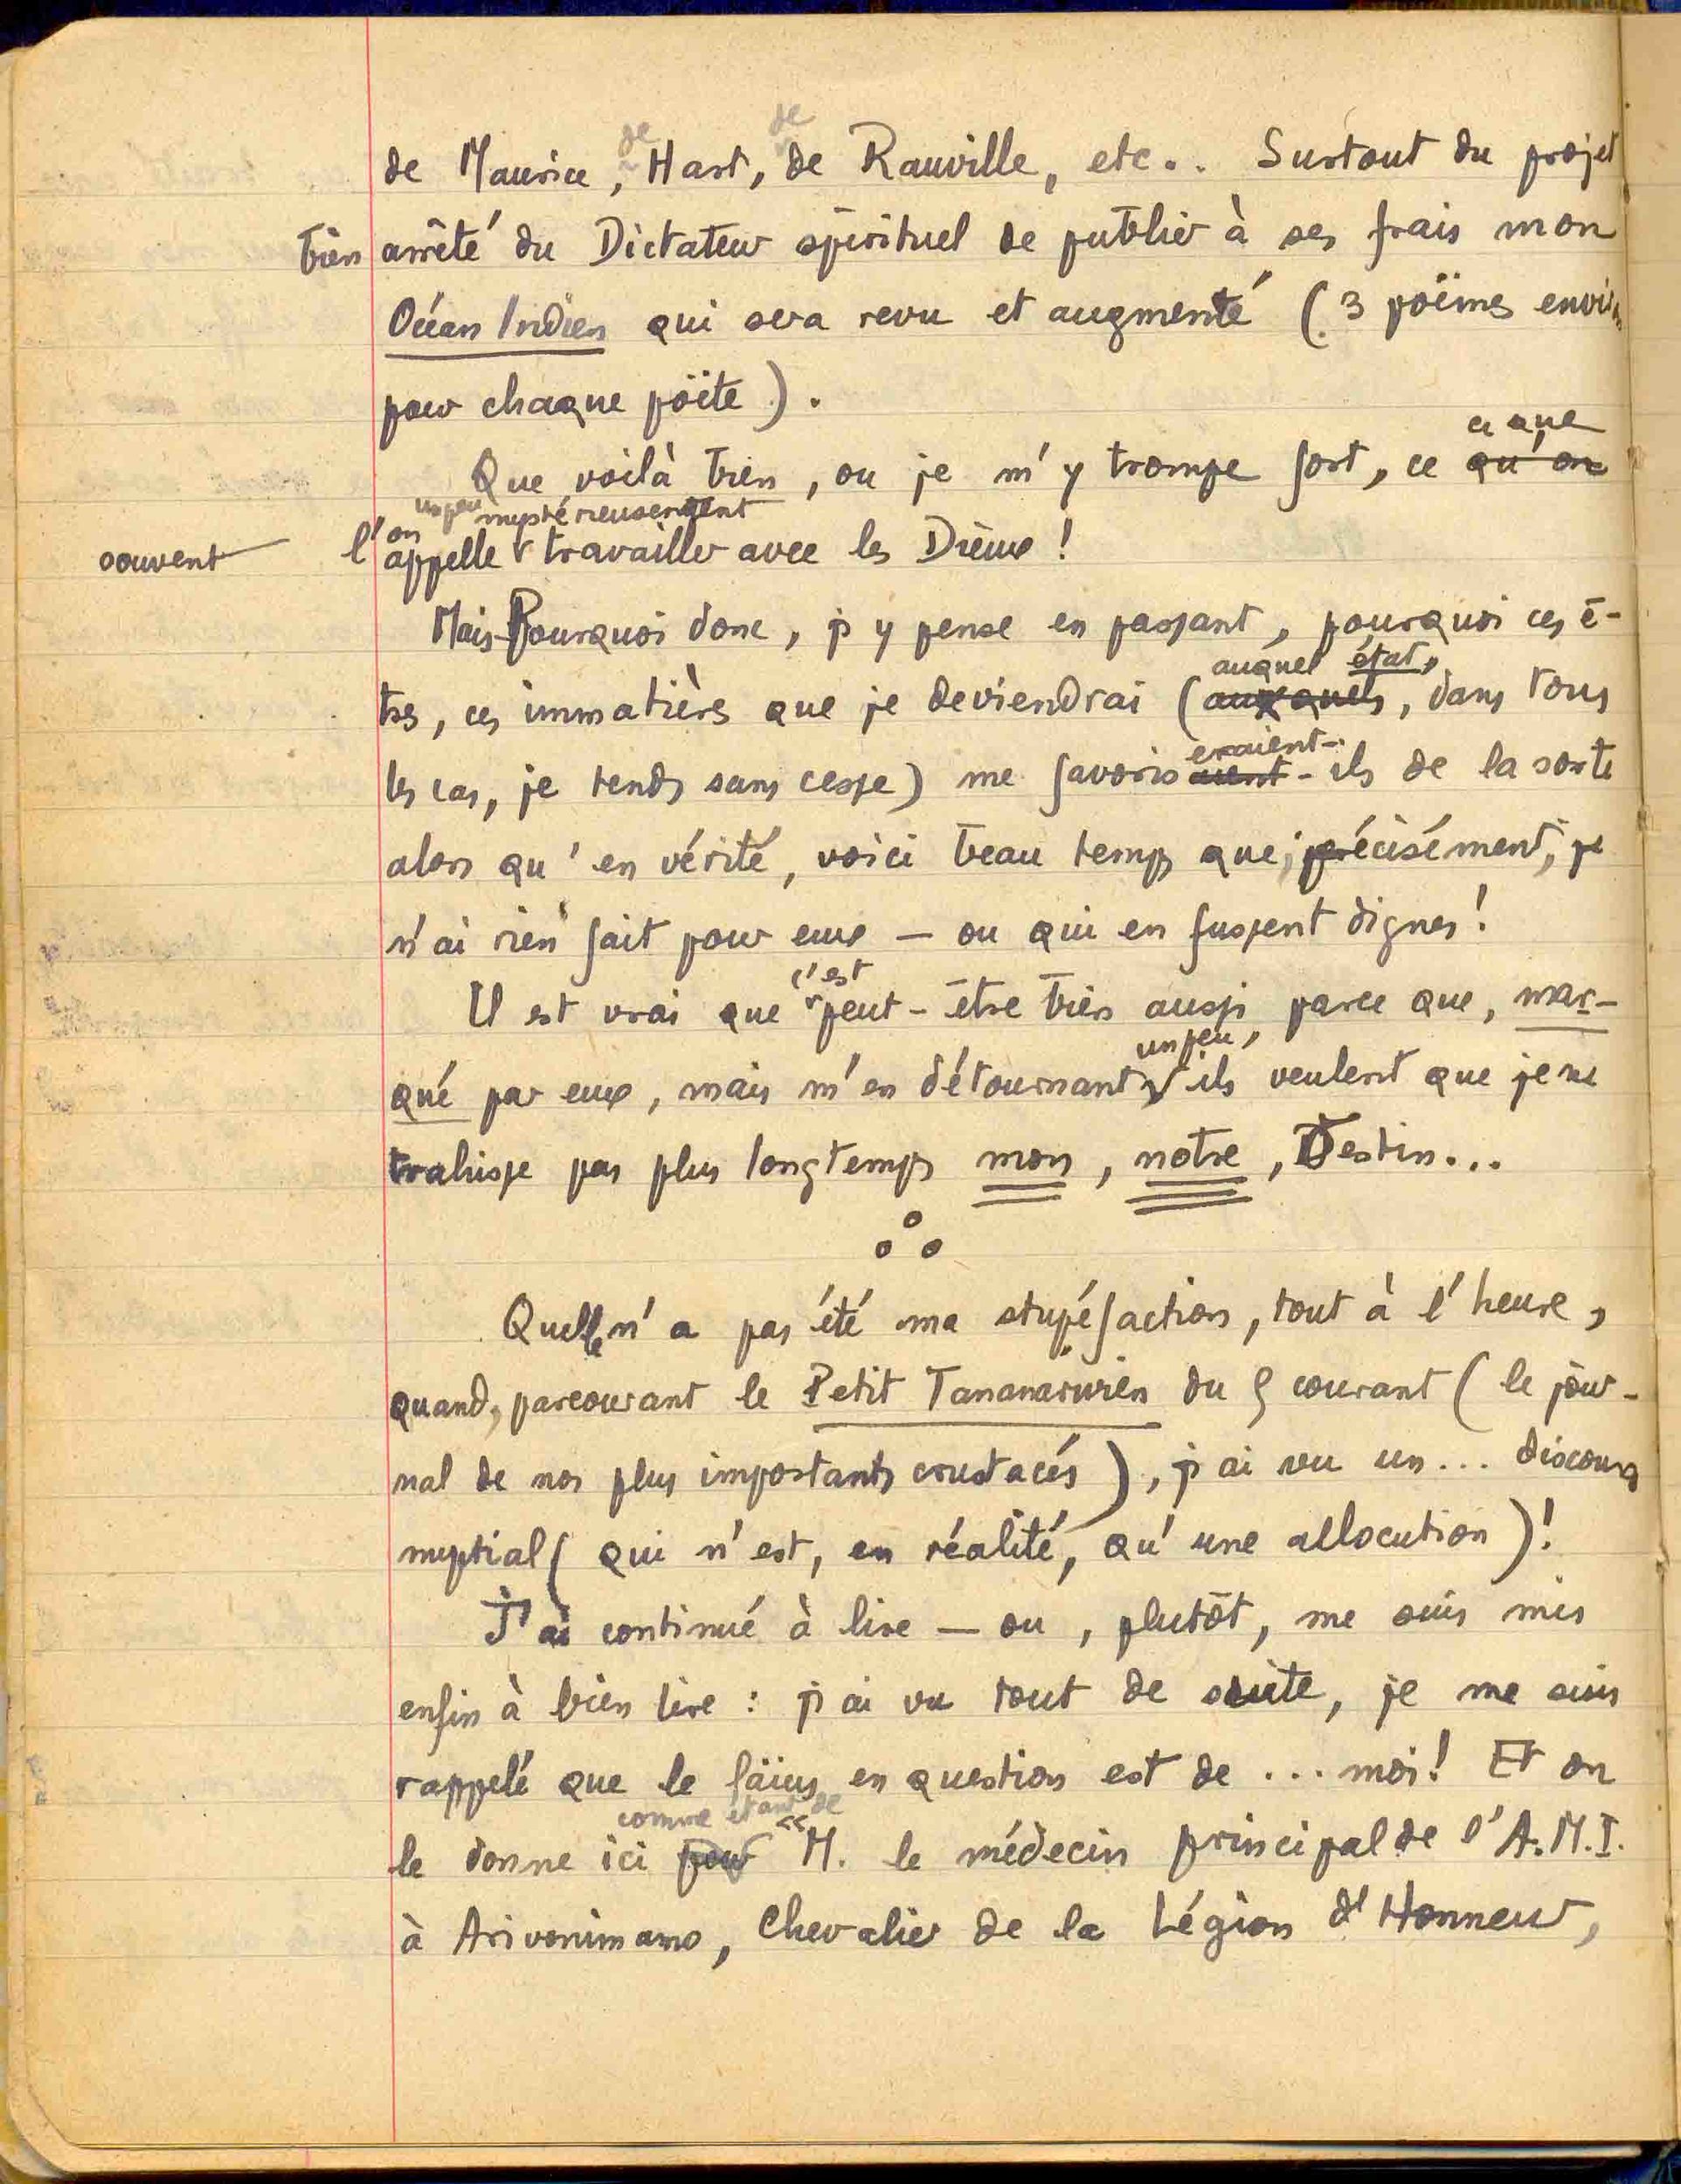 de Maurice, de Hart, de de Rauville, etc.. Surtout du projet
bien arrêté du Dictateur spirituel de publier à ses frais mon
Océan Indien qui sera revu et augmenté (3 poëmes environ
pour chaque poëte).
ce que
Que voilà bien, ou je m'y trompe fort, ce qu'on
un peu mystérieusement
souvent l'on appelle travailler avec les Dieux !
Mais Pourquoi donc, j'y pense en passant, pourquoi ces ê-
auquel état,
tres, ces immatières que je deviendrai (auxquels, dans tous
eraient-
les cas, je tends sans cesse) me favorisaient-ils de la sorte
alors qu'en vérité, voici beau temps que, précisément, je
n'ai rien fait pour eux — ou qui en fussent dignes !
c'est
Il est vrai que peut-être bien aussi parce que, mar-
un peu,
qué par eux, mais m'en détournant, ils veulent que je ne
trahisse pas plus longtemps mon, notre, Destin...
Quelle n'a pas été ma stupéfaction, tout à l'heure,
quand, parcourant le Petit Tananarivien du 9 courant (le jour-
nal de nos plus importants crustacés), j'ai vu un... discours
nuptial (qui n'est, en réalité, qu'une allocution) !
J'ai continué à lire — ou, plutôt, me suis mis
enfin à bien lire : j'ai vu tout de suite, je me suis
rappelé que le laïus en question est de ... moi ! Et on
comme étant de
le donne ici pour « M. le médecin principal de l'A.M.I.
à Arivonimamo, Chevalier de la Légion d'Honneur,